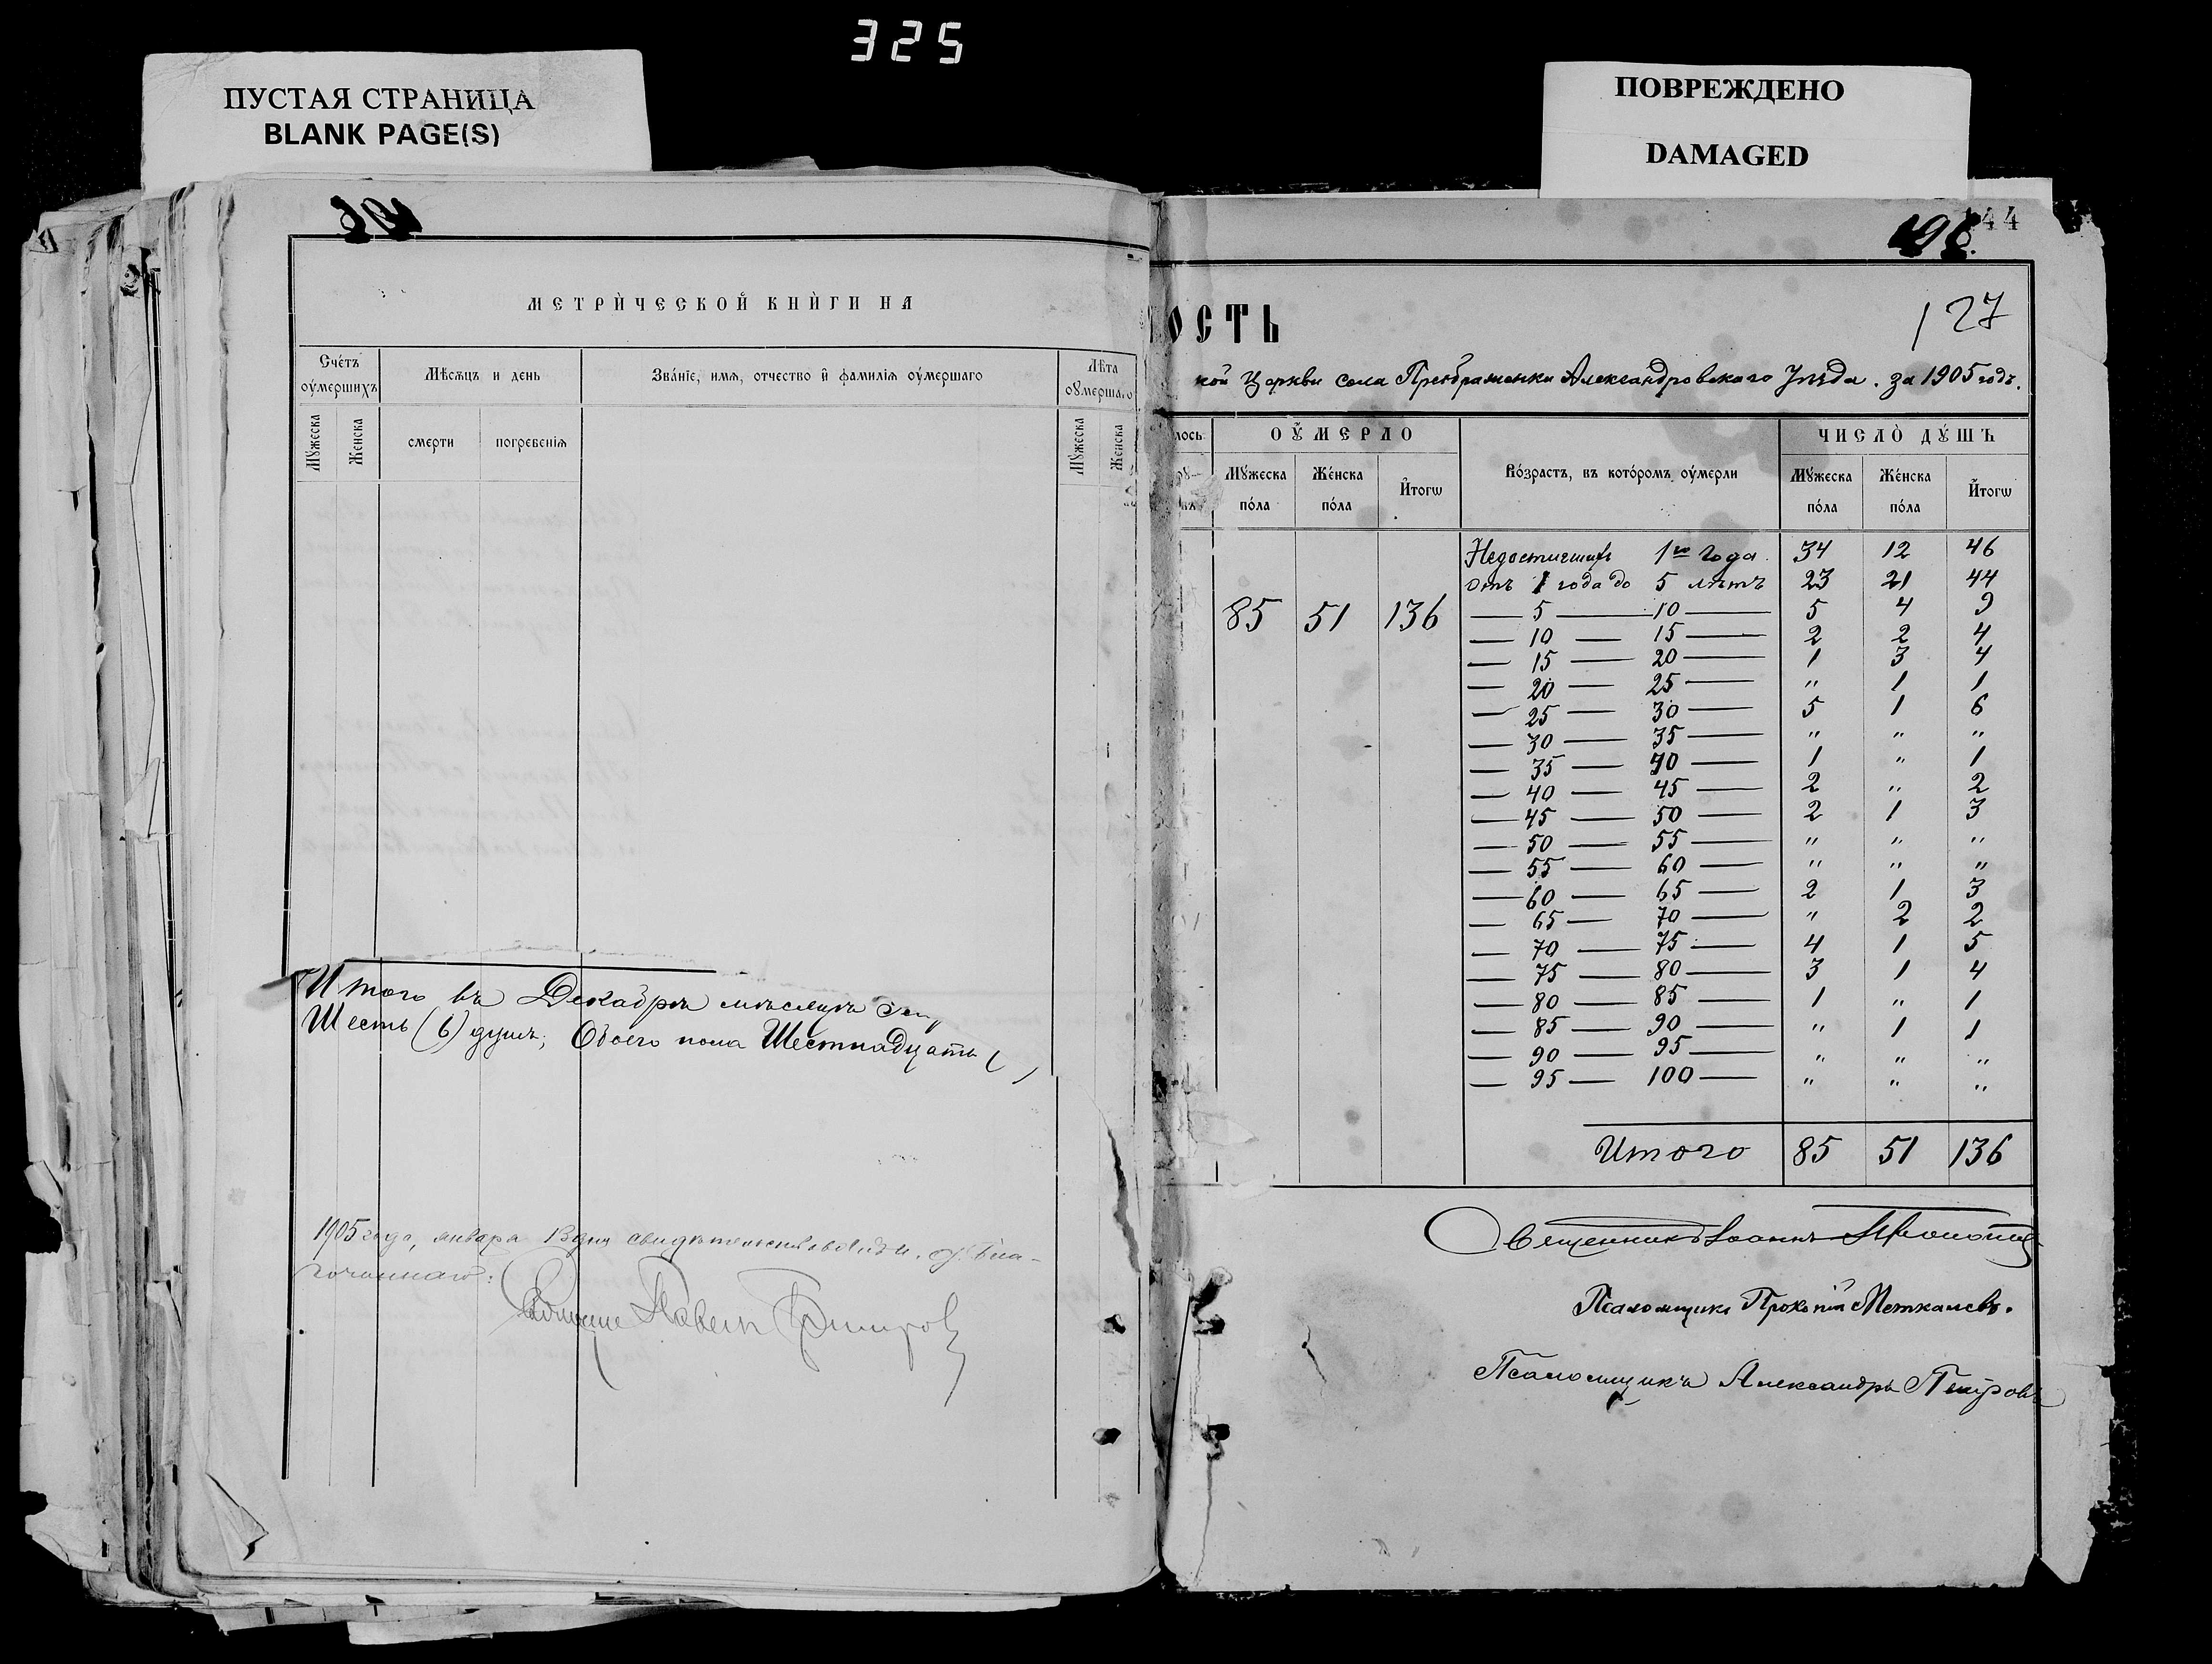 325
ПУСТАЯ СТРАНИЦА
BLANK PAGE(S)
ПОВРЕЖДЕНО
DAMAGED
МЕТРИ́ЧЕСКОЙ КНИ́ГИ НА
Сче́тъ оу҆́мершихъ
Мѣсѧцъ и день
Зва́нїе, имѧ, отчество и҆ фамилїѧ оу҆́мершаго
Лѣта оу҆мершаго
Мꙋжеска
Же́нска
смерти
погребенїѧ
Мꙋ́жеска
Же́нска
Итого въ Декабрѣ мѣсяцѣ
Шесть (6) душъ; Обоего пола Шестнадцать (
1905 года, января 13 дня
Павелъ
44
127
ОСТЬ
кой Церкви села Преображенки Александровскаго Уѣзда. за 1905 годъ.
лось
ОУ҆́МЕРЛО
Во́зрастъ, въ кото́ромъ оу҆́мерли
ЧИСЛО̀ ДꙊ́ШЪ
Мꙋ́жеска по́ла
Же́нска по́ла
И҆тогѡ
Мꙋ́жеска по́ла
Же́нска по́ла
И҆тогѡ
85 51 136
Недостигшихъ 1го года. 34 12 46
отъ 1 года до 5 лѣтъ 23 21 44
— 5 — 10 — 5 4 9
— 10 — 15 — 2 2 4
— 15 — 20 — 1 3 4
— 20 — 25 — " 1 1
— 25 — 30 — 5 1 6
— 30 — 35 — " " "
— 35 — 40 — 1 " 1
— 40 — 45 — 2 " 2
— 45 — 50 — 2 1 3
— 50 — 55 — " " "
— 55 — 60 — " " "
— 60 — 65 — 2 1 3
— 65 — 70 — " 2 2
— 70 — 75 — 4 1 5
— 75 — 80 — 3 1 4
— 80 — 85 — 1 " 1
— 85 — 90 — " 1 1
— 90 — 95 — " " "
— 95 — 100 — " " "
Итого 85 51 136
Священникъ Іоаннъ
Псаломщикъ Прокопій Меткалевъ.
Псаломщикъ Александръ Петровъ